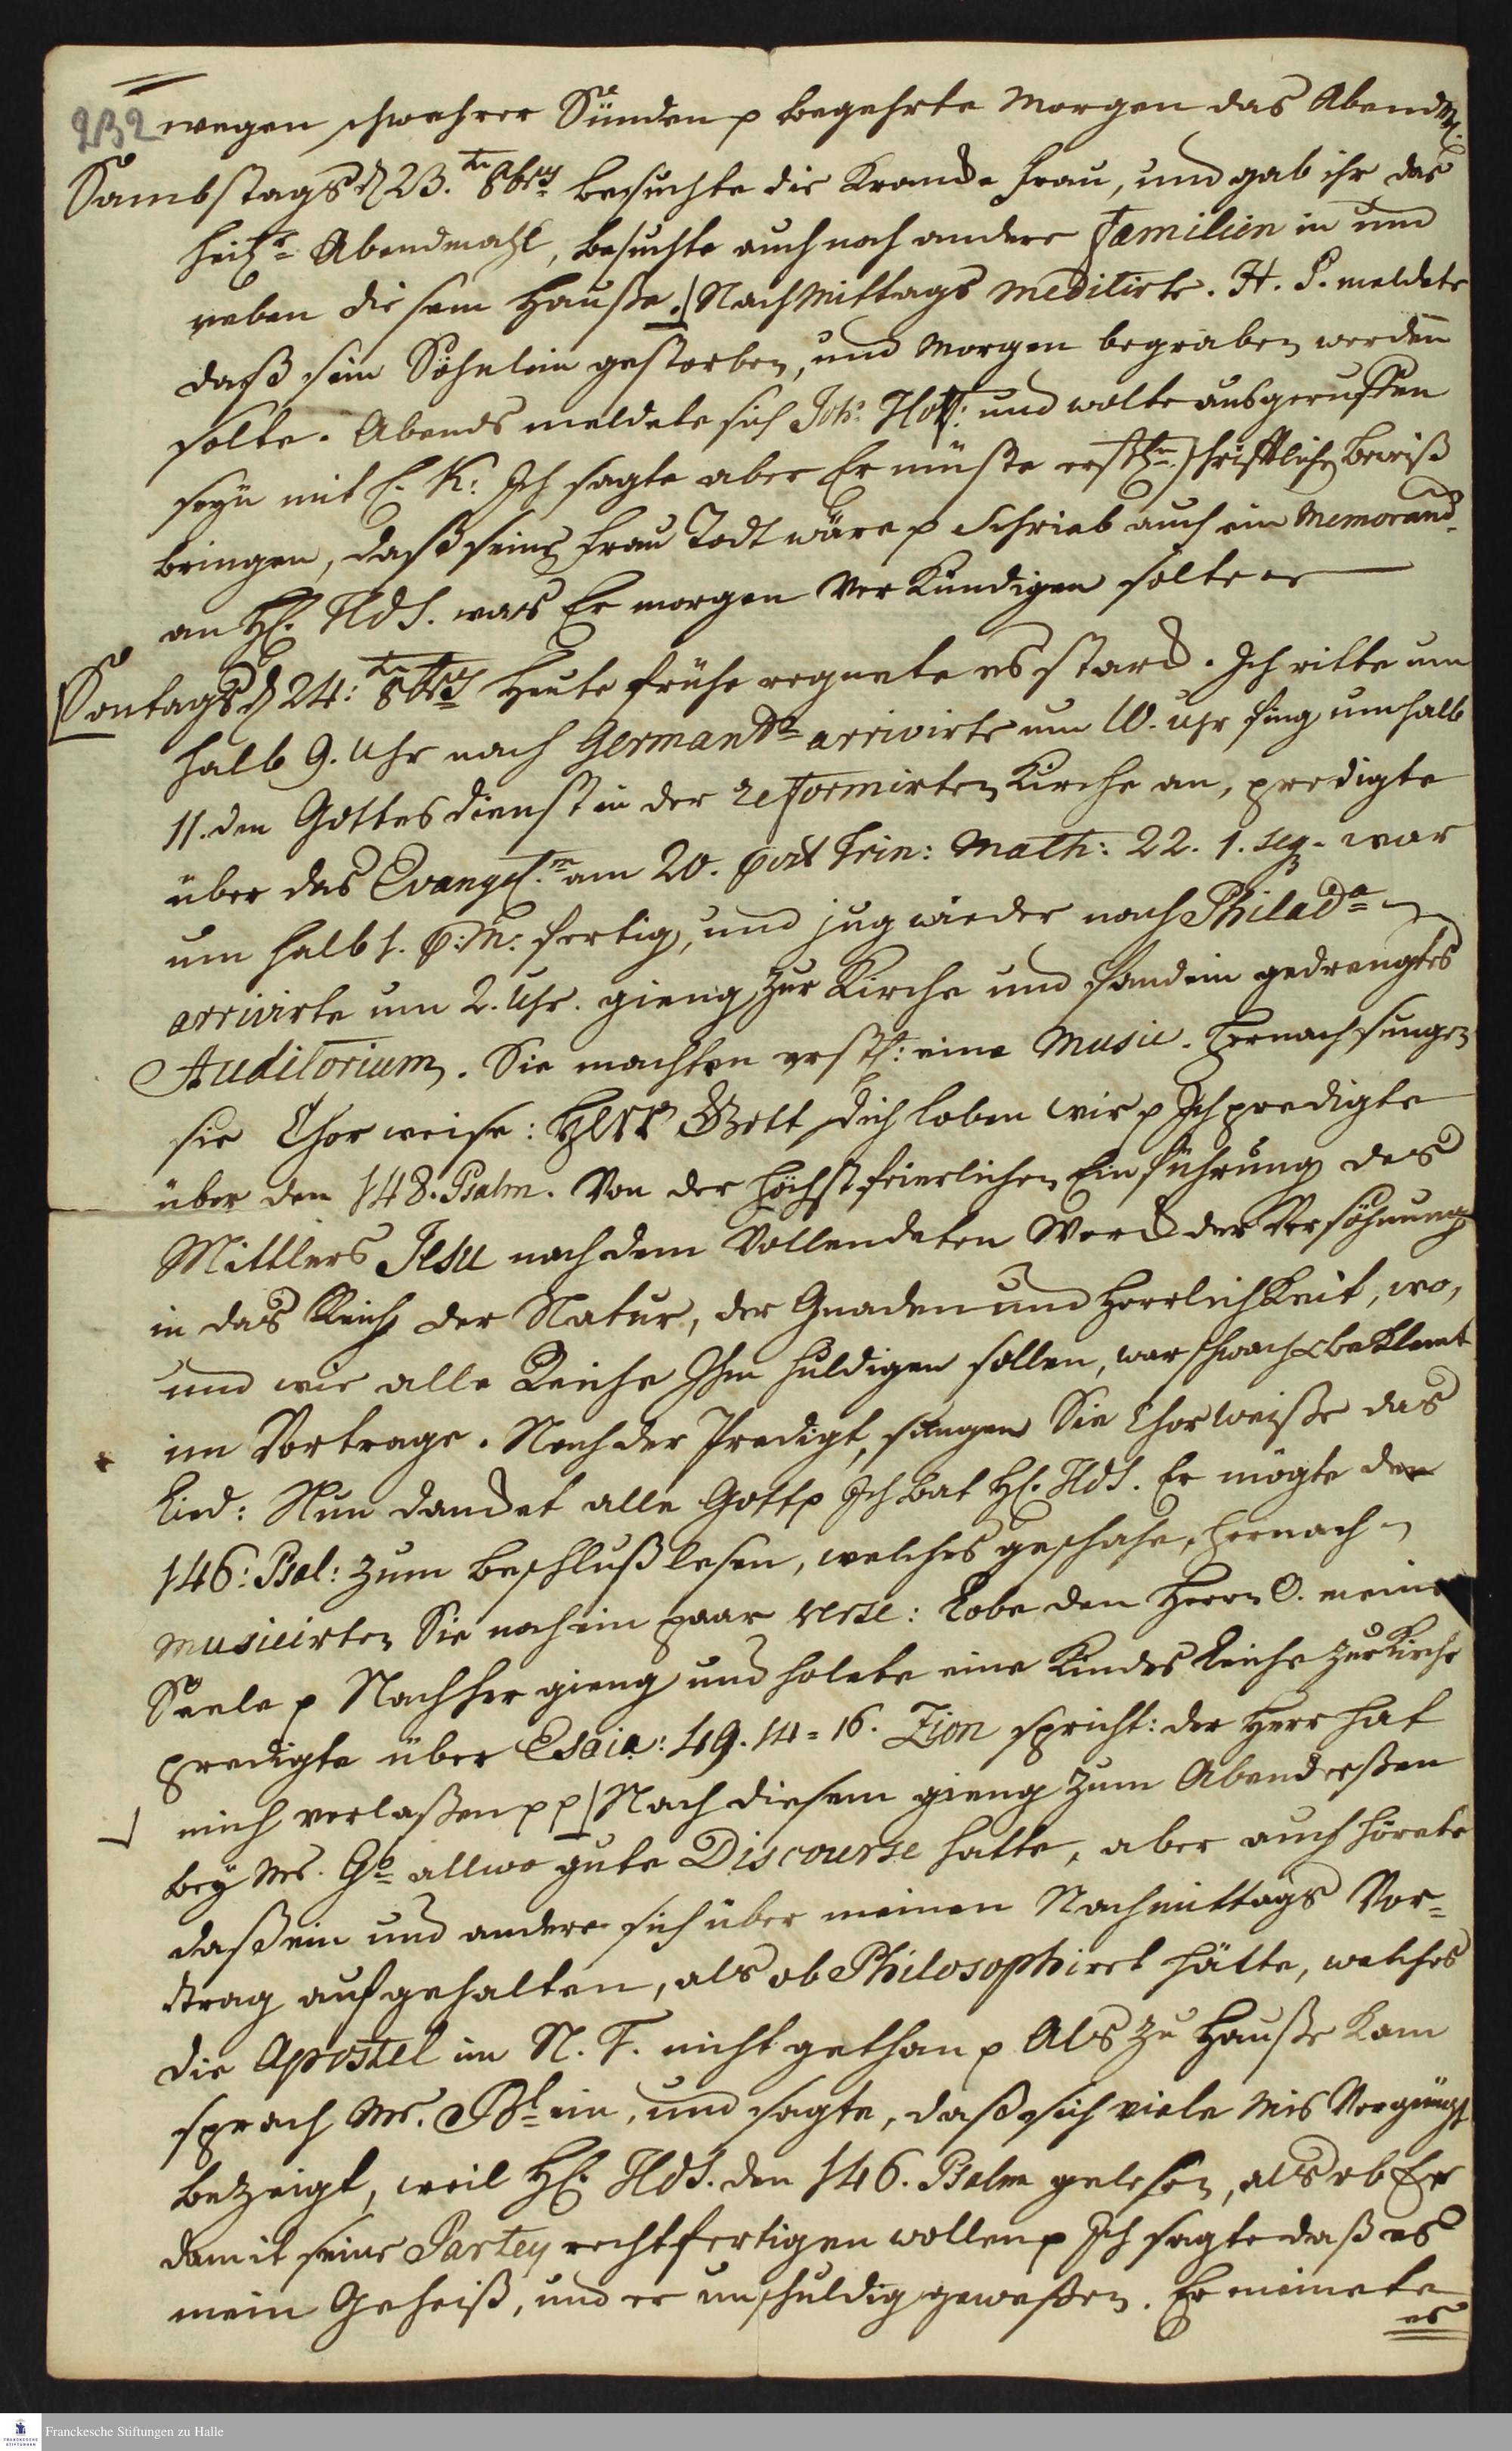 232 wegen schwehrer Sünden p begehrte morgen das Abendm.
Sambstags d 23.ten 8brs besuchte die Krancke Frau, und gab ihr das
heil. Abendmahl, besuchte auch noch andere Familien in und
neben diesem Hauße. Nachmittags meditirte. H. S. meldete
daß sein Söhnlein gestorben, und morgen begraben werden
solte. Abends meldete sich Joh: und wolte ausgeruffen
seyn mit E. K: Ich sagte aber Er müste erstl. schriftlichen Beweiß
bringen, daß seine Frau Todt wäre p Schrieb auch ein Memorand
an H. was Er morgen Verkündigen solte
Sontags d 24:ten 8brs Heute frühe regnete es starck. Ich ritte um
halb 9. Uhr nach Germant. arrivirte um 10. Uhr fing um halb
11. den Gottesdienst in der reformirten Kirche an, predigte
über das Evangel.m am 20. post Trin: Math: 22. 1. seq. war
um halb 1. P:M: fertig, und jug wieder nach Philada
arrivirte um 2. Uhr. gieng zur Kirche und fand ein gedrengtes
Auditorium. Sie machten erstl: eine Music. Hernach sungen
sie Chor weise: HErr Gott dich loben wir p Ich predigte
über den 148. Psalm. Von der höchstfeierlichen Einführung des
Mittlers Jesu nach dem Vollendeten Werck der Versöhnung
in das Reich der Natur, der Gnaden und Herrlichkeit, wo,
und wie alle Reiche Ihm huldigen sollen, war schwach beklemt
im Vortrage. Nach der Predigt, sungen Sie Chor weiße das
Lied: Nun dancket alle Gott p Ich bat H. Er mögte den
146: Psal: zum Beschluß lesen, welches geschahe, hernach
musicirten Sie noch ein paar Verse: Lobe den Herrn O. meine
Seele p Nachher gieng und holete eine Kindes Leiche zur Kirche
predigte über Esaia: 49. 14=16. Zion spricht: der Herr hat
mich verlaßen pp Nach diesem gieng zum Abendeßen
bey Mr. Gb allwo gute Discourse hatte, aber auch hörete
daß ein und andere sich über meinen Nachmittags Vor=
trag aufgehalten, als ob Philosophiret hätte, welches
die Apostel im N. T. nicht gethan p Als zu Hauße kam
sprach Mr. ein, und sagte, daß sich viele Mis Vergnügt
bezeigt, weil H. den 146. Psalm gelesen, als ob Er
damit seine Partey rechtfertigen wollen p Ich sagte daß es
mein Geheiß, und er unschuldig geweßen. Er meinete
es
Franckesche Stiftungen zu Halle